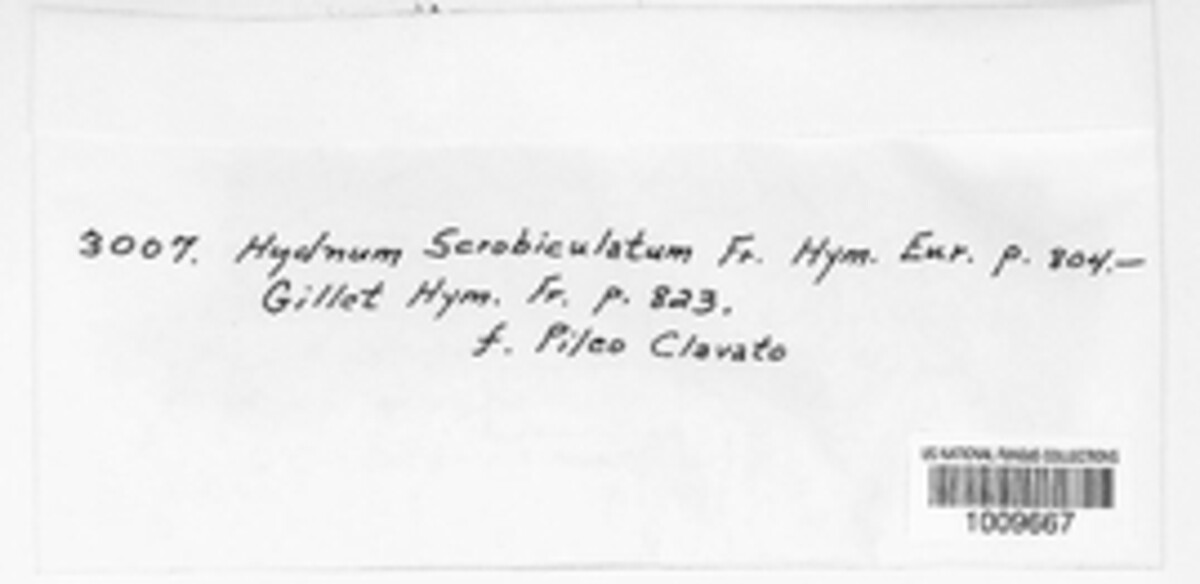 3007. Hydnum Scrobiculatum Fr. Hym. Eur. p. 804.—
Gillet Hym. Fr. p. 823.
f. Pileo Clavato
US NATIONAL FUNGUS COLLECTIONS
1009667